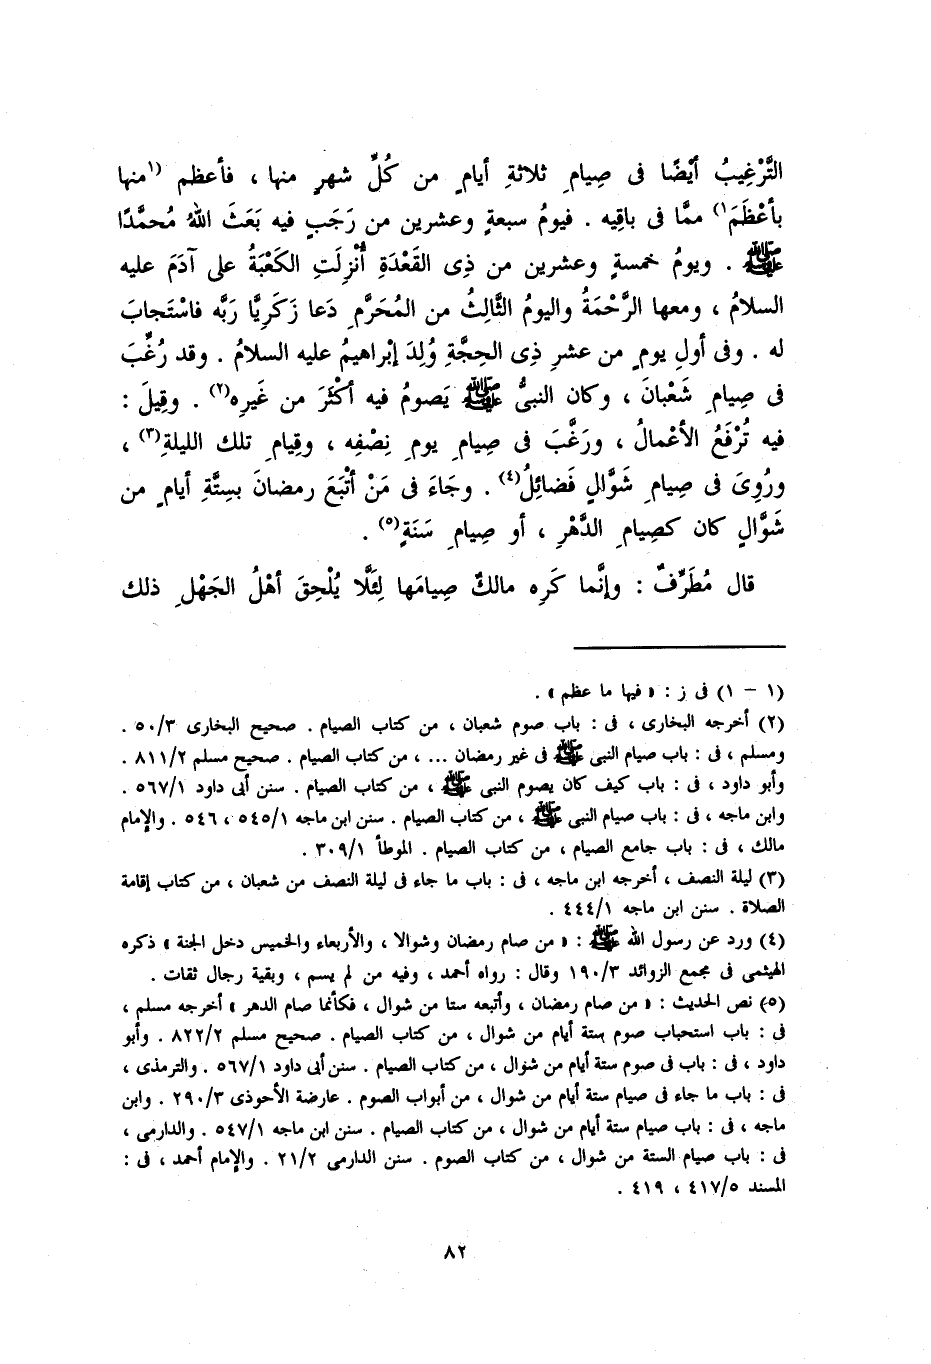 التَّرْغِيبُ أيْضًا فى صِيامِ ثلاثةِ أيامٍ من كُلِّ شهرٍ منها ، فأعظم (١منها
بأعْظَمَ١) ممَّا فى باقِيه . فيومُ سبعةٍ وعشرين من رَجَبٍ فيه بَعَثَ اللهُ مُحمَّدًا
ﷺ . ويومُ خمسةٍ وعشرين من ذِى القَعْدَةِ أُنْزِلَتِ الكَعْبَةُ على آدَمَ عليه
السلامُ ، ومعها الرَّحْمَةُ واليومُ الثَّالِثُ من المُحَرَّمِ دَعا زَكَرِيَّا رَبَّه فاسْتَجابَ
له . وفى أولِ يومٍ من عشرِ ذِى الحِجَّةِ وُلِدَ إبْراهيمُ عليه السلامُ . وقد رُغِّبَ
فى صِيامِ شَعْبانَ ، وكان النبىُّ ﷺ يَصومُ فيه أكْثَرَ من غَيرِه(٢) . وقِيلَ :
فيه تُرْفَعُ الأعْمالُ ، ورَغَّبَ فى صِيامِ يومِ نِصْفِه ، وقِيامِ تلك الليلةِ(٣) ،
ورُوِىَ فى صِيامِ شَوَّالٍ فَضائِلُ(٤) . وجَاءَ فى مَنْ أتْبَعَ رمضانَ بسِتَّةِ أيامٍ من
شَوَّالٍ كان كصِيامِ الدَّهْرِ ، أو صِيامِ سَنَةٍ(٥) .
قال مُطَرِّفٌ : وإنَّما كَرِه مالكٌ صِيامَها لِئَلَّا يُلْحِقَ أهْلُ الجَهْلِ ذلك
(١ – ١) فى ز : « فيها ما عظم » .
(٢) أخرجه البخارى ، فى : باب صوم شعبان ، من كتاب الصيام . صحيح البخارى ٥٠/٣ .
ومسلم ، فى : باب صيام النبى ﷺ فى غير رمضان ... ، من كتاب الصيام . صحيح مسلم ٨١١/٢ .
وأبو داود ، فى : باب كيف كان يصوم النبى ﷺ ، من كتاب الصيام . سنن أبى داود ٥٦٧/١ .
وابن ماجه ، فى : باب صيام النبى ﷺ ، من كتاب الصيام . سنن ابن ماجه ٥٤٥/١ ، ٥٤٦ . والإمام
مالك ، فى : باب جامع الصيام ، من كتاب الصيام . الموطأ ٣٠٩/١ .
(٣) ليلة النصف ، أخرجه ابن ماجه ، فى : باب ما جاء فى ليلة النصف من شعبان ، من كتاب إقامة
الصلاة . سنن ابن ماجه ٤٤٤/١ .
(٤) ورد عن رسول الله ﷺ : « من صام رمضان وشوالا ، والأربعاء والخميس دخل الجنة » ذكره
الهيثمى فى مجمع الزوائد ١٩٠/٣ وقال : رواه أحمد ، وفيه من لم يسم ، وبقية رجال ثقات .
(٥) نص الحديث : « من صام رمضان ، وأتبعه ستا من شوال ، فكأنما صام الدهر » أخرجه مسلم ،
فى : باب استحباب صوم ستة أيام من شوال ، من كتاب الصيام . صحيح مسلم ٨٢٢/٢ . وأبو
داود ، فى : باب فى صوم ستة أيام من شوال ، من كتاب الصيام . سنن أبى داود ٥٦٧/١ . والترمذى ،
فى : باب ما جاء فى صيام ستة أيام من شوال ، من أبواب الصوم . عارضة الأحوذى ٢٩٠/٣ . وابن
ماجه ، فى : باب صيام ستة أيام من شوال ، من كتاب الصيام . سنن ابن ماجه ٥٤٧/١ . والدارمى ،
فى : باب صيام الستة من شوال ، من كتاب الصوم . سنن الدارمى ٢١/٢ . والإمام أحمد ، فى :
المسند ٤١٧/٥ ، ٤١٩ .
٨٢